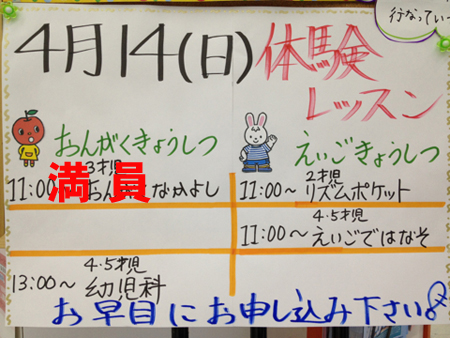 行なってい
4月14(日) 体験
レッスン
おんがくきょうしつ
えいごきょうしつ
3才児
11:00
満員
なかよし
2才児
11:00〜 リズムポケット
4・5才児
11:00〜 えいごではなそ
4・5才児
13:00〜 幼児科
お早目にお申し込み下さい。